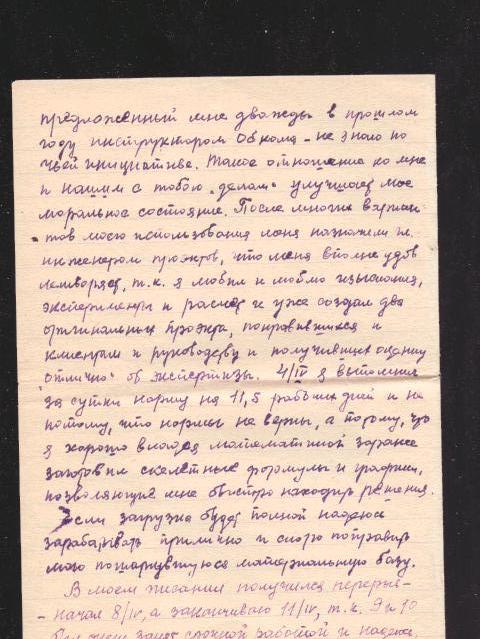 предложенный мне дважды в прошлом
году инструктором Обкома - не знаю по
чьей инициативе. Такое отношение ко мне
и нашим с тобою „делам" улучшает мое
моральное состояние. После многих вариан-
тов моего использования меня назначили
инженером проэктов, что меня вполне удов
летворяет, т.к. я любил и люблю изыскания,
эксперименты и расчет и уже создал два
оригинальных проэкта, понравившихся и
клиентам и руководству и получивших оценку
"отлично" об экспертизы. 4/IV я выполнил
за сутки норму на 11,5 рабочих дней и не
потому, что нормы не верны, а потому, что
я хорошо владея математикой заранее
заготовил скелетные формулы и графики,
позволяющие мне быстро находить решения.
Если загрузка будет полной надеюсь
зарабатывать прилично и скоро поправить
мою пошатнувшуюся материальную базу.
В моем писании получился перерыв-
- начал 8/IV, а заканчиваю 11/IV, т.к. 9 и 10
был занят срочной работой и